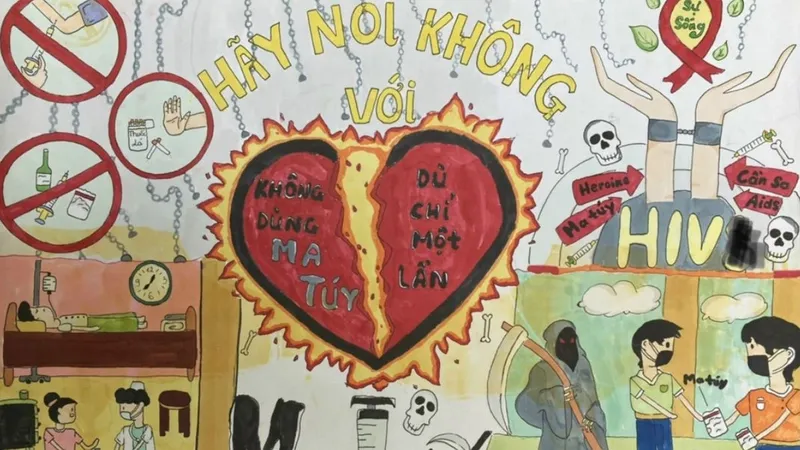 HÃY NÓI KHÔNG
VỚI
Thuốc
lá
KHÔNG
DÙNG
MA
TÚY
DÙ
CHỈ
MỘT
LẦN
Sự
Sống
Heroine
Ma túy
Cần Sa
Aids
HIV
Ma túy